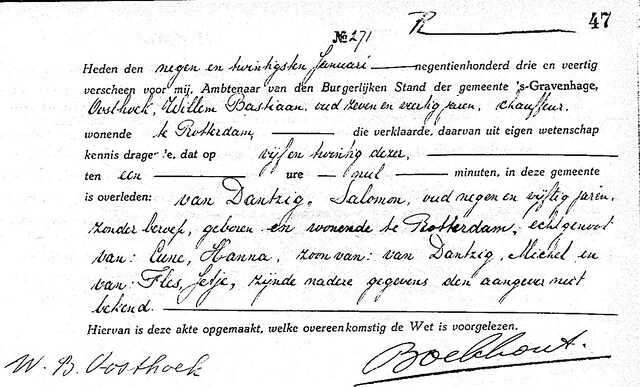 47
№ 271 R
Heden den negen en twintigsten Januari negentienhonderd drie en veertig
verscheen voor mij, Ambtenaar van den Burgerlijken Stand der gemeente 's-Gravenhage,
Oosthoek, Willem Bastiaan, oud zeven en veertig jaren, chauffeur,
wonende te Rotterdam, die verklaarde, daarvan uit eigen wetenschap
kennis dragende, dat op vijf en twintig dezer,
ten een ure nul minuten, in deze gemeente
is overleden: van Dantzig, Salomon, oud negen en vijftig jaren,
zonder beroep, geboren en wonende te Rotterdam, echtgenoot
van: Cune, Hanna, zoon van: van Dantzig, Michel en
van: Fles, Jetje, zijnde nadere gegevens den aangever niet
bekend.
Hiervan is deze akte opgemaakt, welke overeenkomstig de Wet is voorgelezen.
W. B. Oosthoek Boekhout.